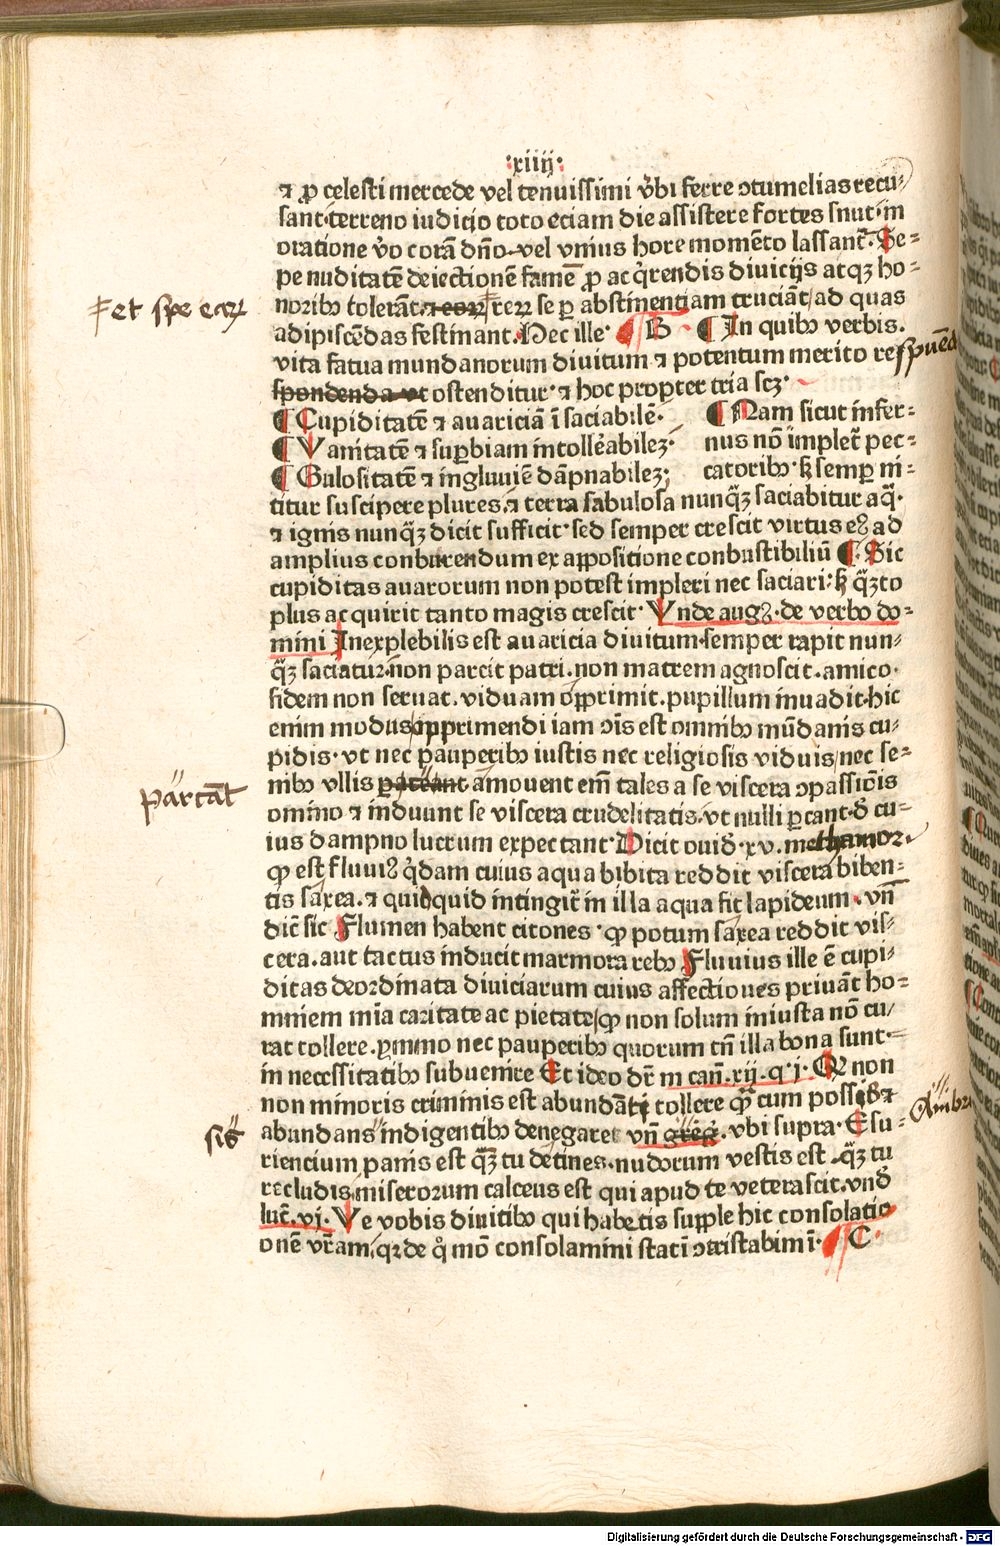 ·xiiij·
⁊ ꝓ celesti mercede vel tenuissimi v̓bi ferre ↄtumelias recu⸗
sant·terreno iudicio toto eciam die assistere fortes snut·in
oratione v̓o corā dn̄o vel vnius hore momēto lassant̄. Se⸗
pe nuditatē deiectionē famē ꝓ ac q̄rendis diuicijs atqꝫ ho⸗
noribꝫ tolerāt. rerꝝ se ꝑ abstinentiam cruciāt/ad quas
Fet spe eaꝝ
adipiscēdas festinant. Hec ille B ¶ In quibꝫ verbis.
vita fatua mundanorum diuitum ⁊ potentum merito re spuēd
spondenda vt ostenditur· ⁊ hoc propter tria scꝫ·
¶ Cupiditatē ⁊ auariciā ī saciabilē· ¶ Nam sicut infer⸗
¶ Vanitatē ⁊ suꝑbiam intolle̓abilez· nus nō implet̄ pec⸗
¶ Gulositatē ⁊ ingluuiē dāpnabilez; catoribꝫ ꝭ semper ni⸗
titur suscipere plures.⁊ terra sabulosa nunqꝫ̄ saciabitur aq̄·
⁊ ignis nunqꝫ̄ dicit sufficit· sed semper crescit virtus eꝰ ad
amplius conburendum ex appositione conbustibiliū ¶ Sic
cupiditas auarorum non potest impleri nec saciari: ꝭ qꝫ̄to
plus ac quirit tanto magis crescit· Vnde augꝰ·de verbo do⸗
mini Inexplebilis est auaricia diuitum·semper rapit nun⸗
qꝫ̄ saciatur·non parcit patri.non matrem agnoscit.amico·
fidem non seruat.viduam opprimit.pupillum inuadit·hic
enim modus opprimendi iam ↄīs est omnibꝫ mūdanis cu⸗
pidis·vt nec pauperibꝫ iustis nec religiosis viduis/nec se⸗
nibꝫ vllis amouent em̄ tales a se viscera ↄpassiōis
parcāt
omino ⁊ induunt se viscera crudelitatis.vt nulli ꝑcant·ꝺ̄ cu⸗
ius dampno lucrum expectant· Dicit ouid̄·xv.methamor
ꝙ est fluuiꝰ q̄dam cuius aqua bibita reddit viscera biben⸗
tis saxea.⁊ quidquid intingit̄ in illa aqua fit lapideum·vn̄
dic̄ sic Flumen habent citones·ꝙ potum saxea reddit vis⸗
cera.aut tactus inducit marmora rebꝫ Fluuius ille ē cupi⸗
ditas deordinata diuiciarum cuius affectiones priuāt ho⸗
mniem mīa caritate ac pietate/ꝙ non solum iniusta nō cu⸗
rat tollere.ꝑmmo nec pauperibꝫ quorum tn̄ illa bona sunt·
in necessitatibꝫ subuenire Et ideo dr̄ in can̄.xij.q·j· Qꝛ non
non minoris criminis est abundāti tollere qm̄ cum possis ⁊
abundans indigentibꝫ denegaret vn̄ greḡ.vbi supra· Esu⸗
Ambr
sis
riencium panis est qꝫ̄ tu detines.nudorum vestis est qꝫ̄ tu
recludis,miserorum calceus est qui apud te veterascit.vnd̄
luc̄.vj. Ve vobis diuitibꝫ qui habetis supple hic consolatio
onē vr̄am,qꝛ de q̊ mō consolamini statī ↄtristabimī· C